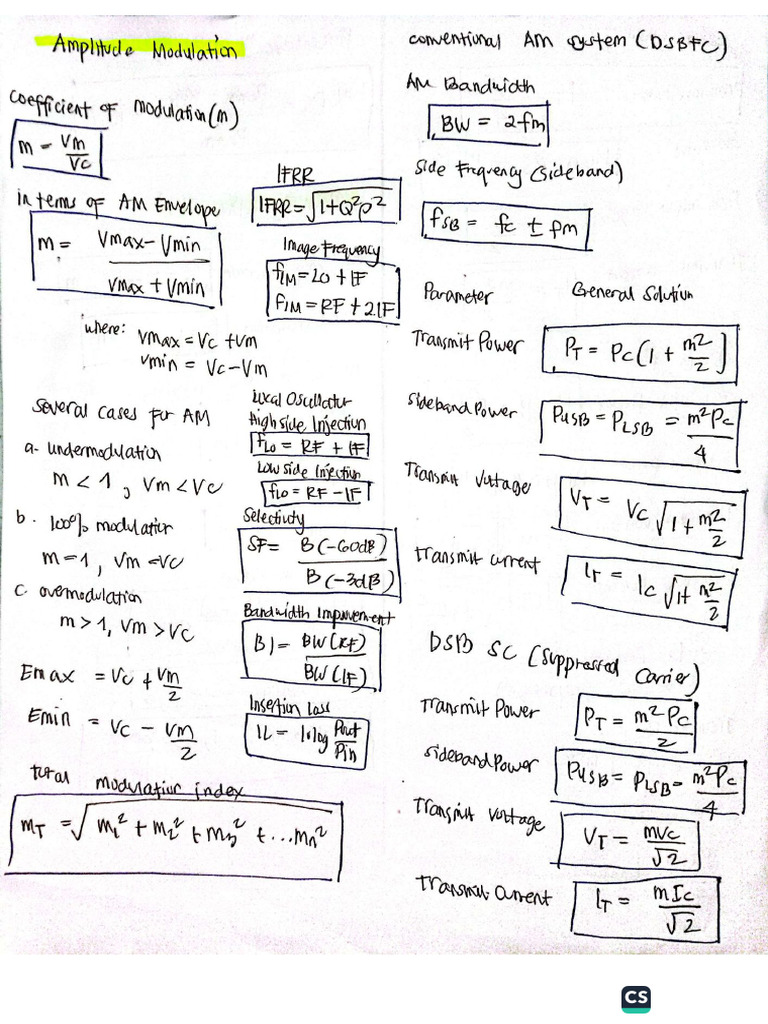 Amplitude Modulation
coefficient of modulation (m)
m = Vm/Vc
in terms of AM Envelope
m = Vmax - Vmin / Vmax + Vmin
where: Vmax = Vc + Vm
Vmin = Vc - Vm
Several cases for AM
a- undermodulation
m < 1, Vm < Vc
b. 100% modulation
m = 1, Vm = Vc
c. overmodulation
m > 1, Vm > Vc
Emax = Vc + Vm/2
Emin = Vc - Vm/2
total modulation index
mT = √m1² + m2² + m3² + ... mn²
IFRR
IFRR = √1+Q²ρ²
Image Frequency
fIM = LO + IF
fIM = RF + 2IF
Local Oscillator
High side Injection
fLO = RF + IF
Low side Injection
fLO = RF - IF
Selectivity
SF = B(-60dB) / B(-3dB)
Bandwidth Improvement
BI = BW(RF) / BW(IF)
Insertion Loss
IL = 10log Pout/Pin
conventional AM system (DSBFC)
AM Bandwidth
BW = 2fm
Side Frequency (sideband)
fSB = fc ± fm
Parameter General Solution
Transmit Power PT = Pc(1 + m²/2)
Sideband Power PUSB = PLSB = m²Pc/4
Transmit Voltage VT = Vc √1 + m²/2
transmit current IT = Ic √1+ m²/2
DSB SC (suppressed Carrier)
Transmit Power PT = m²Pc/2
sideband Power PUSB = PLSB = m²Pc/4
Transmit Voltage VT = mVc/√2
Transmit Current IT = mIc/√2
CS